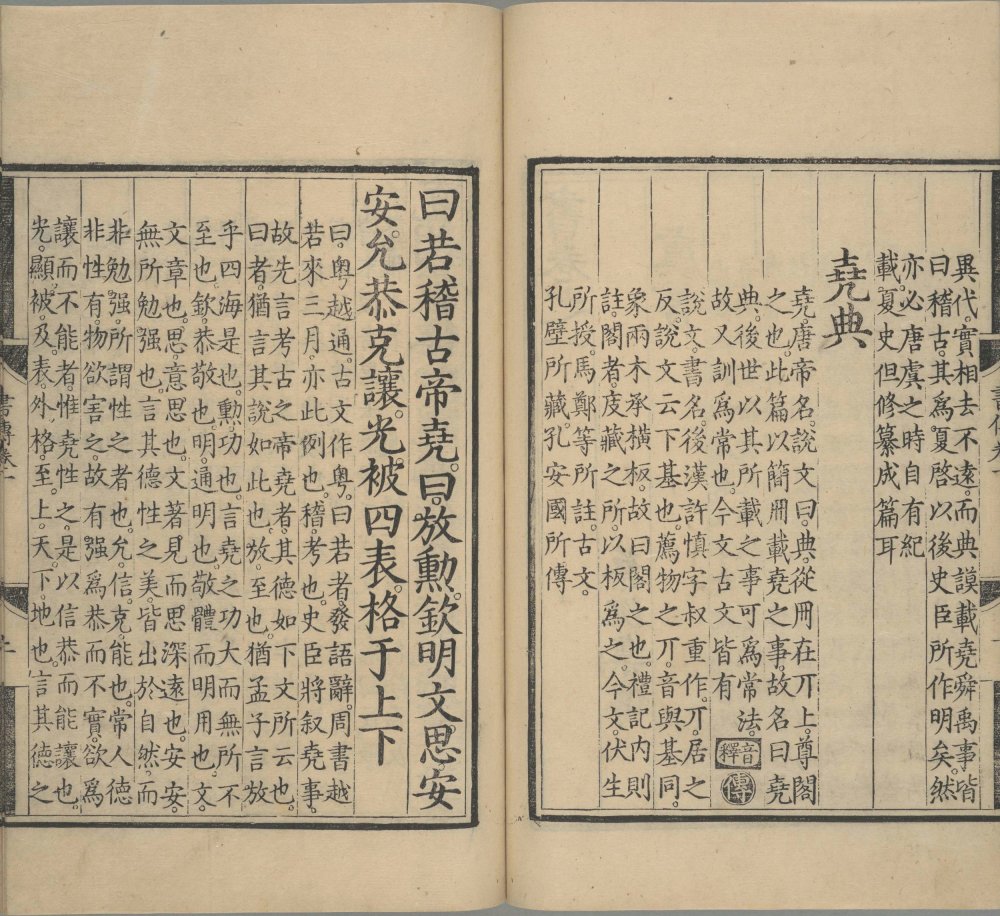 異代。實相去不遠。而典謨載堯舜禹事皆
曰稽古。其爲夏啓以後史臣所作明矣。然
亦必唐虞之時自有紀
載。夏史但修纂成篇耳
堯典
堯唐帝名。說文曰。典。從冊在丌上。尊閣
之也。此篇以簡冊載堯之事。故名曰堯
典。後世以其所載之事可爲常法。
故又訓爲常也。今文古文皆有
音釋 傳
說文。書名。後漢許慎字叔重作。丌。居之
反。說文云。下基也。薦物之丌。音與基同。
象兩木承橫板。故曰閣之也。禮記內則
註。閣者。庋藏之所。以板爲之。今文。伏生
所授。馬鄭等所註。古文。
孔壁所藏。孔安國所傳
曰若稽古帝堯。曰放勳。欽明文思。安
安。允恭克讓。光被四表。格于上下
曰。粵越通。古文作粵。曰若者。發語辭。周書越
若來三月。亦此例也。稽。考也。史臣將叙堯事。
故先言考古之帝堯者。其德如下文所云也。
曰者。猶言其說如此也。放。至也。猶孟子言放
乎四海是也。勳。功也。言堯之功大而無所不
至也。欽。恭敬也。明。通明也。敬體而明用也。文。
文章也。思。意思也。文著見而思深遠也。安安。
無所勉強也。言其德性之美。皆出於自然。而
非勉強。所謂性之者也。允。信。克。能也。常人德
非性有。物欲害之。故有強爲恭而不實。欲爲
讓而不能者。惟堯性之。是以信恭而能讓也。
光。顯。被。及。表。外。格。至。上。天。下。地也。言其德之